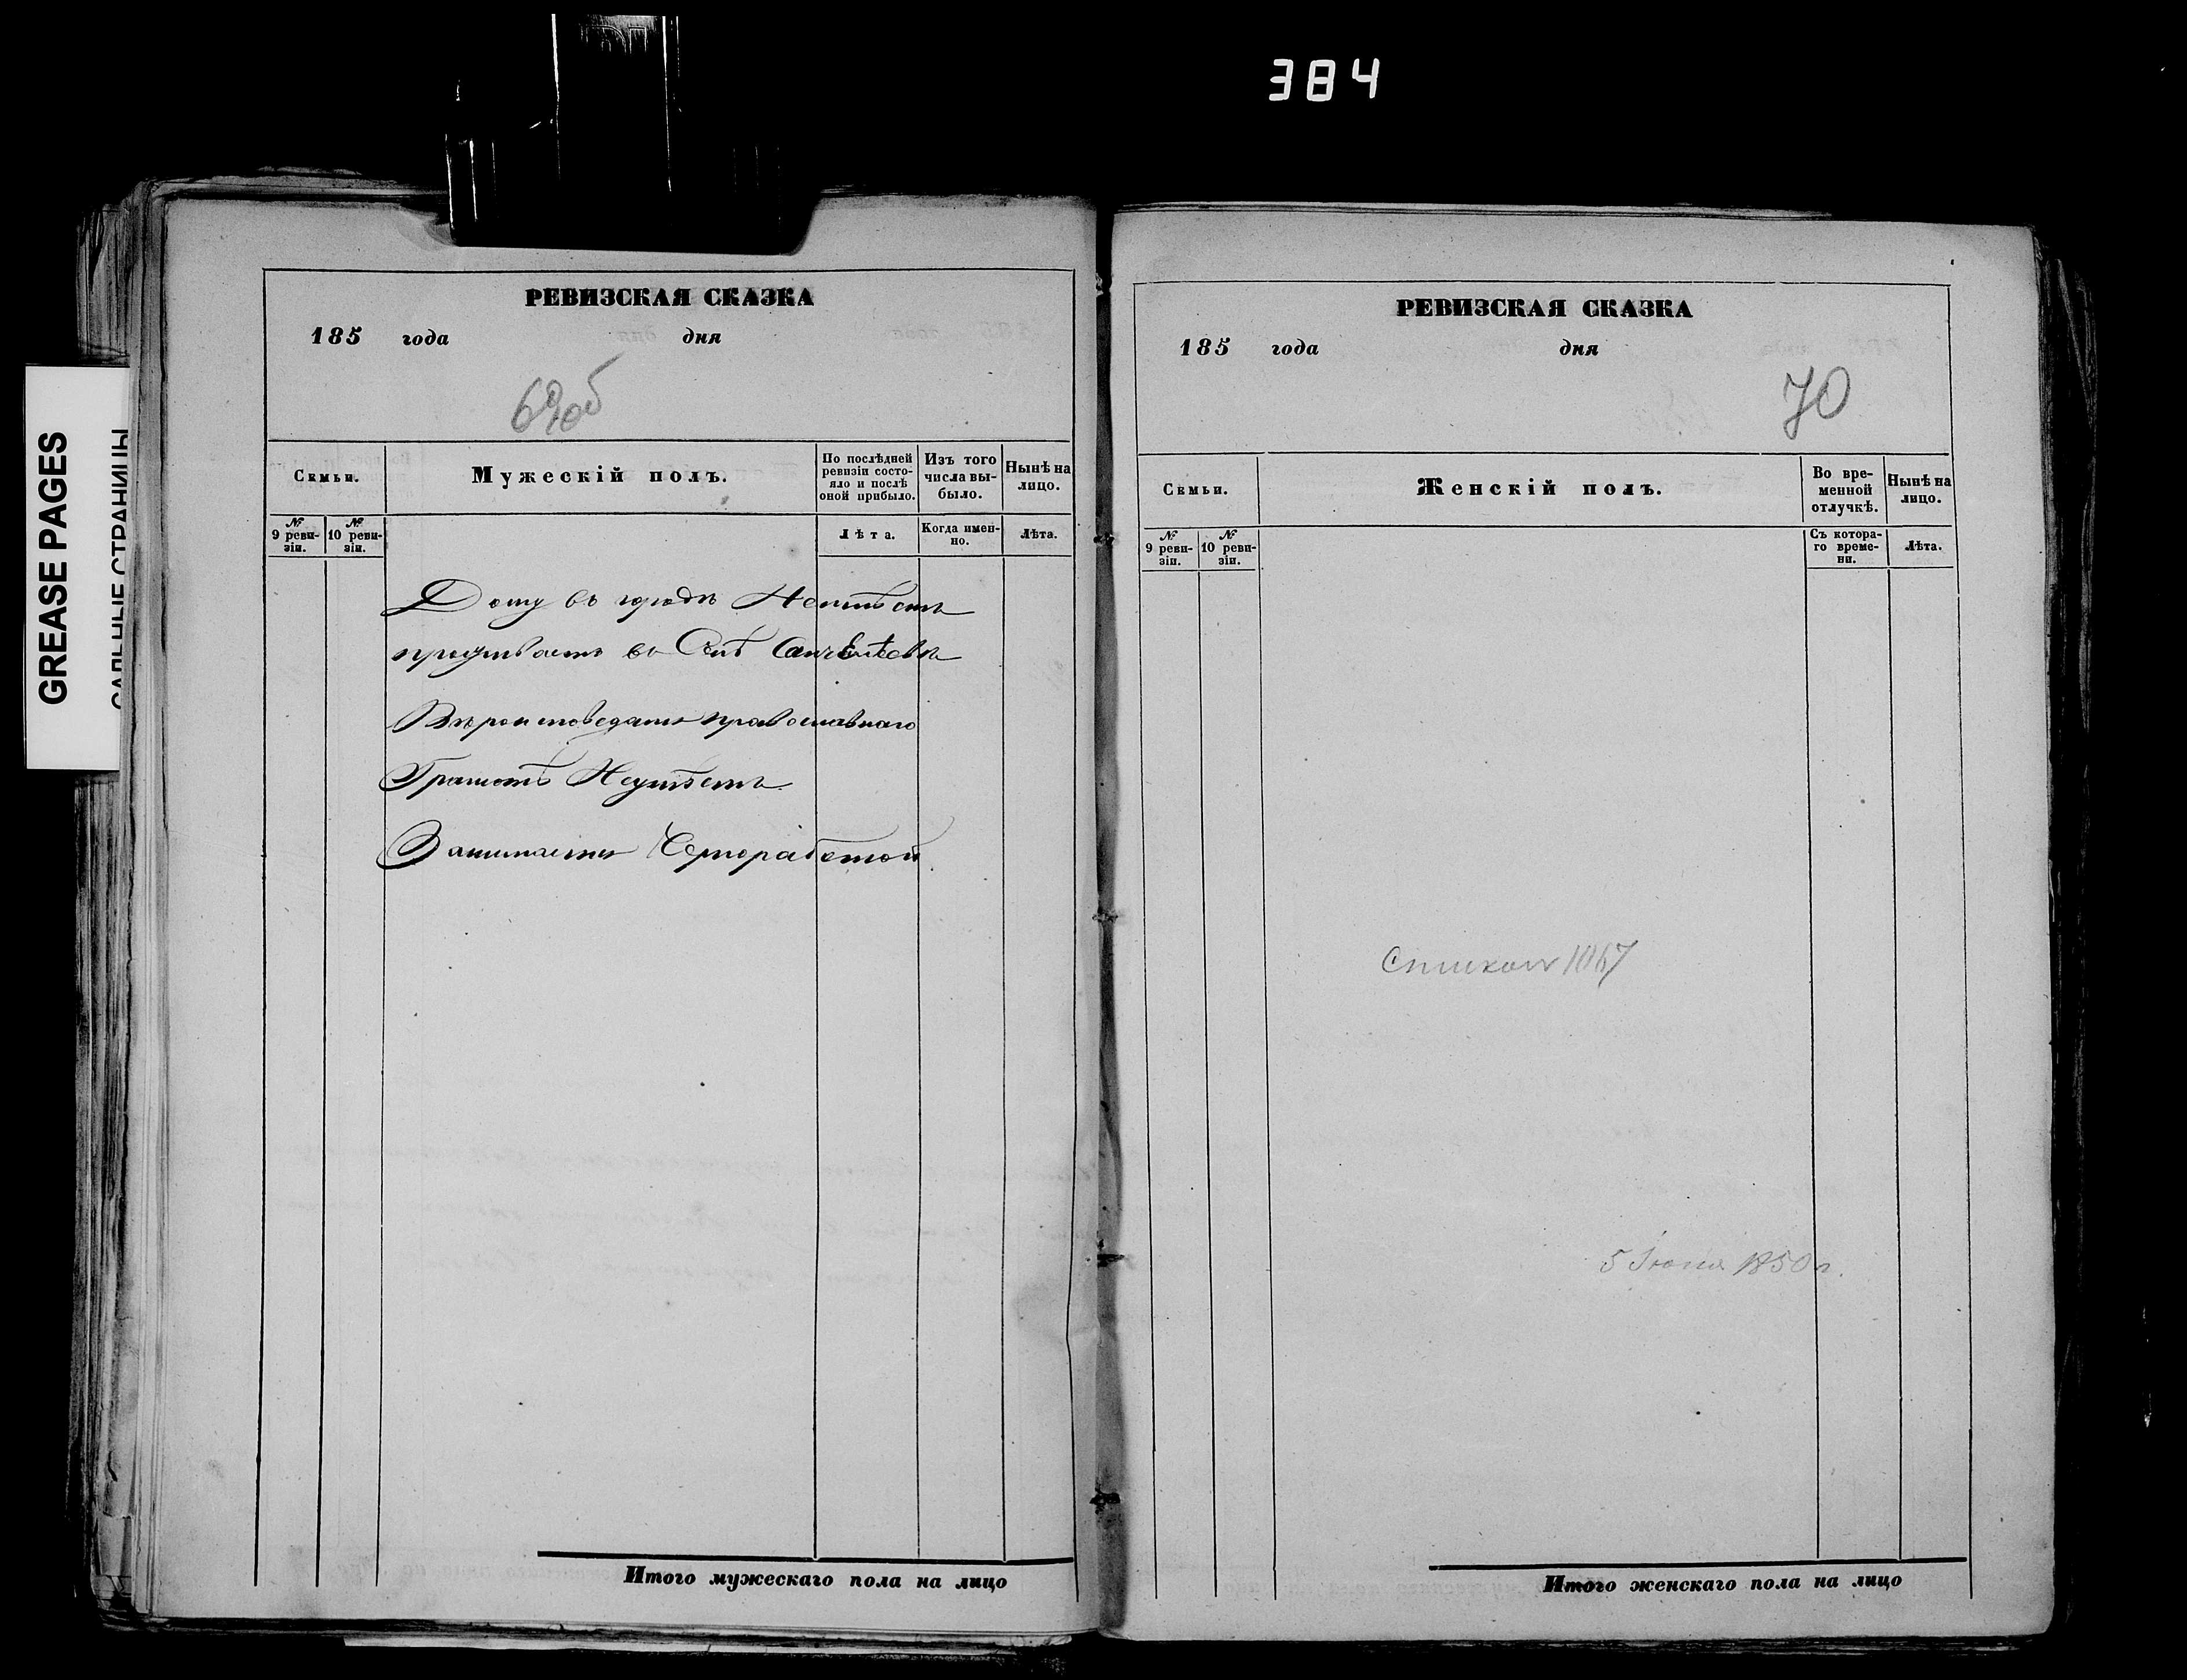 384
GREASE PAGES
САЛЬНЫЕ СТРАНИЦЫ
РЕВИЗСКАЯ СКАЗКА
185 года дня
69об
Семьи.
Мужескій полъ.
По послѣдней ревизіи состо-
яло и послѣ
оной прибыло.
Изъ того
числа вы-
было.
Нынѣ на
лицо.
№ 9 реви-
зіи.
№ 10 реви-
зіи.
Лѣта.
Когда имен-
но.
Лѣта.
Дому въ городѣ Неимѣетъ
проживаетъ въ Селѣ
Вѣроисповеданія православнаго
Грамотѣ Неумѣетъ
Занимается Черноработой
Итого мужескаго пола на лицо
РЕВИЗСКАЯ СКАЗКА
185 года дня
70
Семьи.
Женскій полъ.
Во вре-
менной
отлучкѣ.
Нынѣ на
лицо.
№ 9 реви-
зіи.
№ 10 реви-
зіи.
Съ котора-
го време-
ни.
Лѣта.
5 Іюня 1850 г.
Итого женскаго пола на лицо